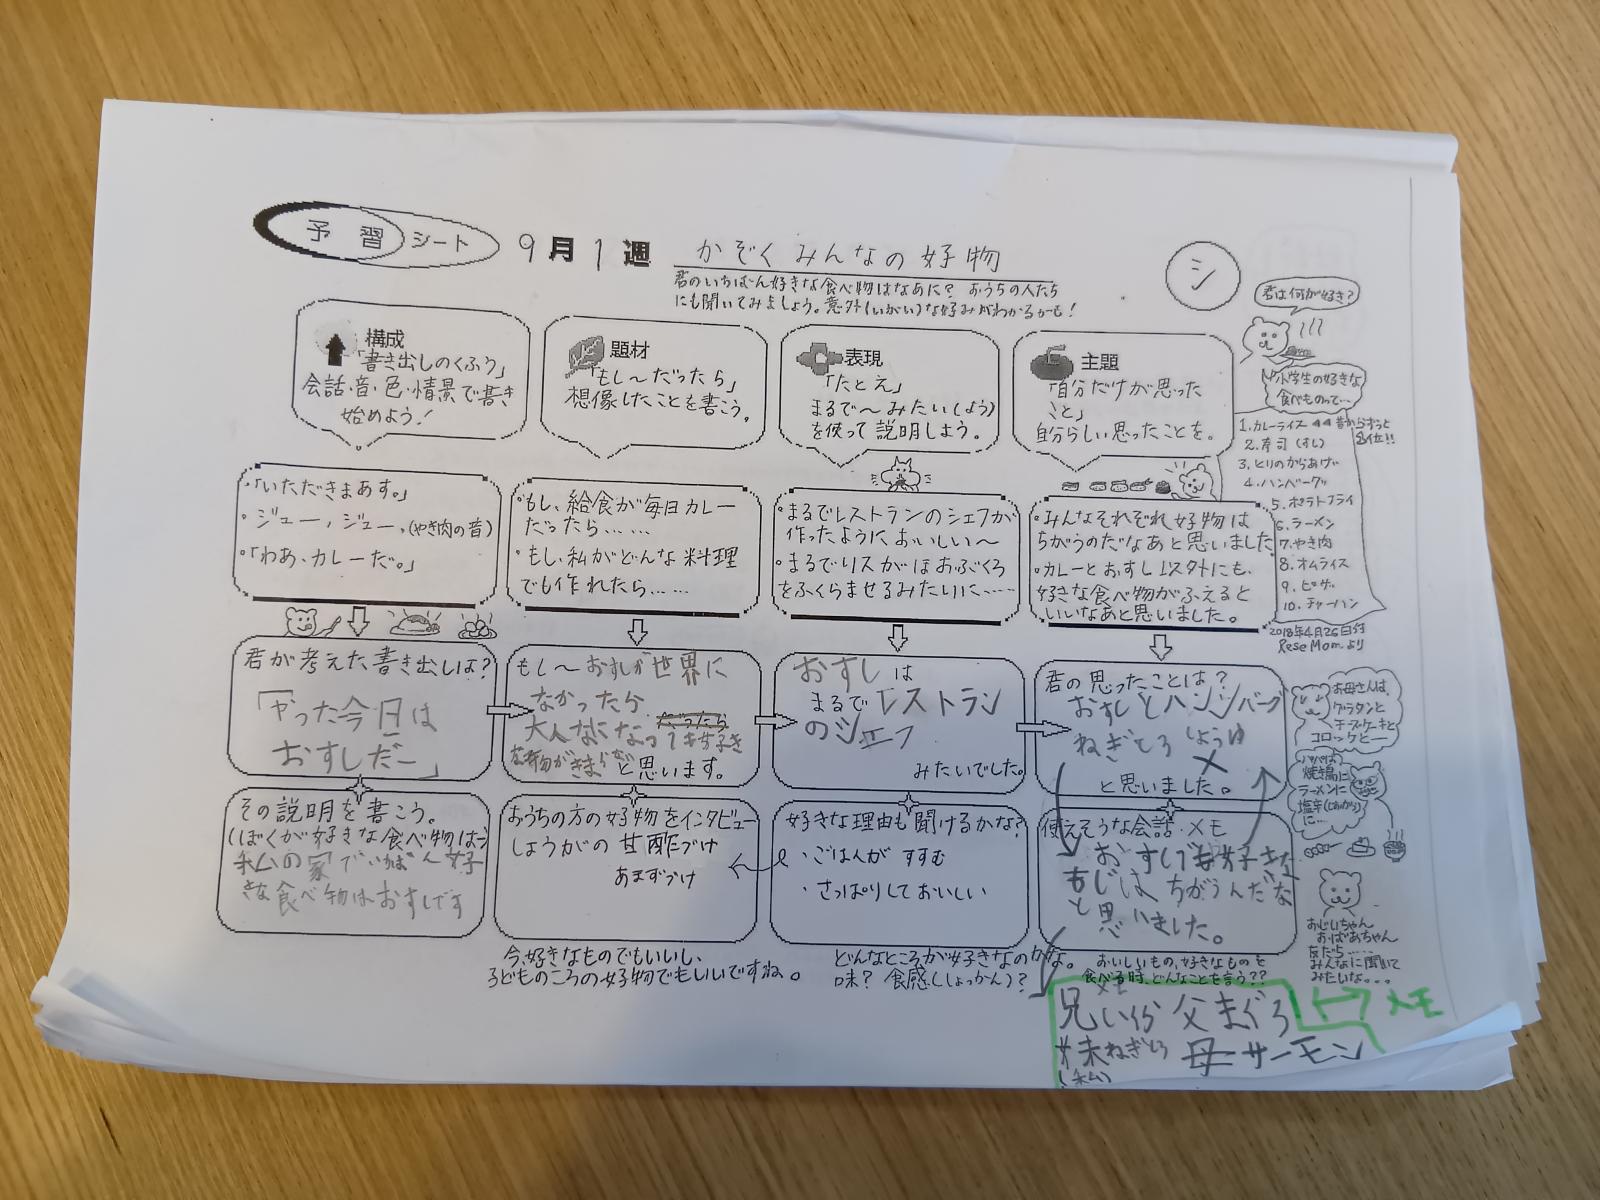 予習シート 9月1週 かぞくみんなの好物
君のいちばん好きな食べ物はなあに？ おうちの人たち
にも聞いてみましょう。意外(いがい)な好みがわかるかも！
シ
君は何が好き？
構成
「書き出しのくふう」
会話・音・色・情景で書き
始めよう！
題材
「もし〜だったら」
想像したことを書こう。
表現
「たとえ」
まるで〜みたい(よう)
を使って説明しよう。
主題
「自分だけが思った
こと」
自分らしい思ったことを。
小学生の好きな
食べものって…
1.カレーライス ◀◀昔からずっと
1位!!
2.寿司(すし)
3.とりのからあげ
4.ハンバーグ
5.ポテトフライ
6.ラーメン
7.やき肉
8.オムライス
9.ピザ
10.チャーハン
2018年4月26日付
ReseMomより
・「いただきまあす。」
・ジュー,ジュー,(やき肉の音)
・「わあ、カレーだ。」
・もし、給食が毎日カレー
だったら……
・もし、私がどんな料理
でも作れたら……
・まるでレストランのシェフが
作ったようにおいしい〜
・まるでリスがほおぶくろ
をふくらませるみたいに……
・みんなそれぞれ好物は
ちがうのだなあと思いました
・カレーとおすし以外にも、
好きな食べ物がふえると
いいなあと思いました。
君が考えた書き出しは？
「やった今日は
おすしだー」
もし〜おすしが世界に
なかったら
大人になって好き
な物がきまらない
と思います。
おすしは
まるでレストラン
のシェフ
みたいでした。
君の思ったことは？
おすしとハンバーグ
ねぎとろ しょうゆ
と思いました。
お母さんは、
グラタンと
チーズケーキと
コロッケと―
パパは
焼き鳥に
ラーメンに
塩辛(しおから)
に…
その説明を書こう。
(ぼくが好きな食べ物は〜)
私の家でいちばん好
きな食べ物はおすしです
おうちの方の好物をインタビュー
しょうがの甘酢づけ
あまずづけ
好きな理由も聞けるかな？
・ごはんがすすむ
・さっぱりしておいしい
使えそうな会話・メモ
おすしでも好きな
もじは、ちがうんだな
と思いました。
おじいちゃん
おばあちゃん
友だち…
みんなに聞いて
みたいな。。。
今、好きなものでもいいし、
子どものころの好物でもいいですね。
どんなところが好きなのかな。
味？ 食感(しょっかん)？
おいしいもの、好きなものを
食べる時、どんなことを言う??
メモ
兄いくら 父まぐろ
妹ねぎとろ 母サーモン
(私)
メモ